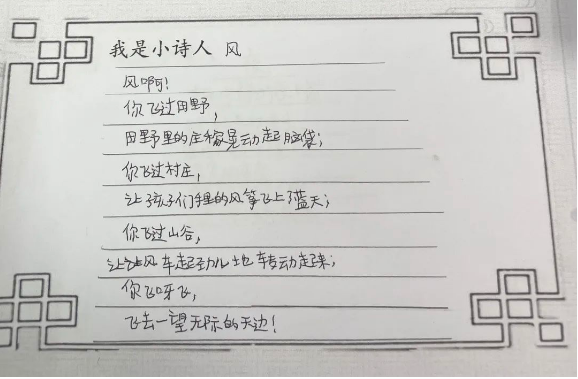 我是小诗人 风
风啊！
你飞过田野，
田野里的庄稼晃动起脑袋；
你飞过村庄，
让孩子们手里的风筝飞上了蓝天；
你飞过山谷，
让让风车起劲儿地转动起来；
你飞呀飞，
飞去一望无际的天边！